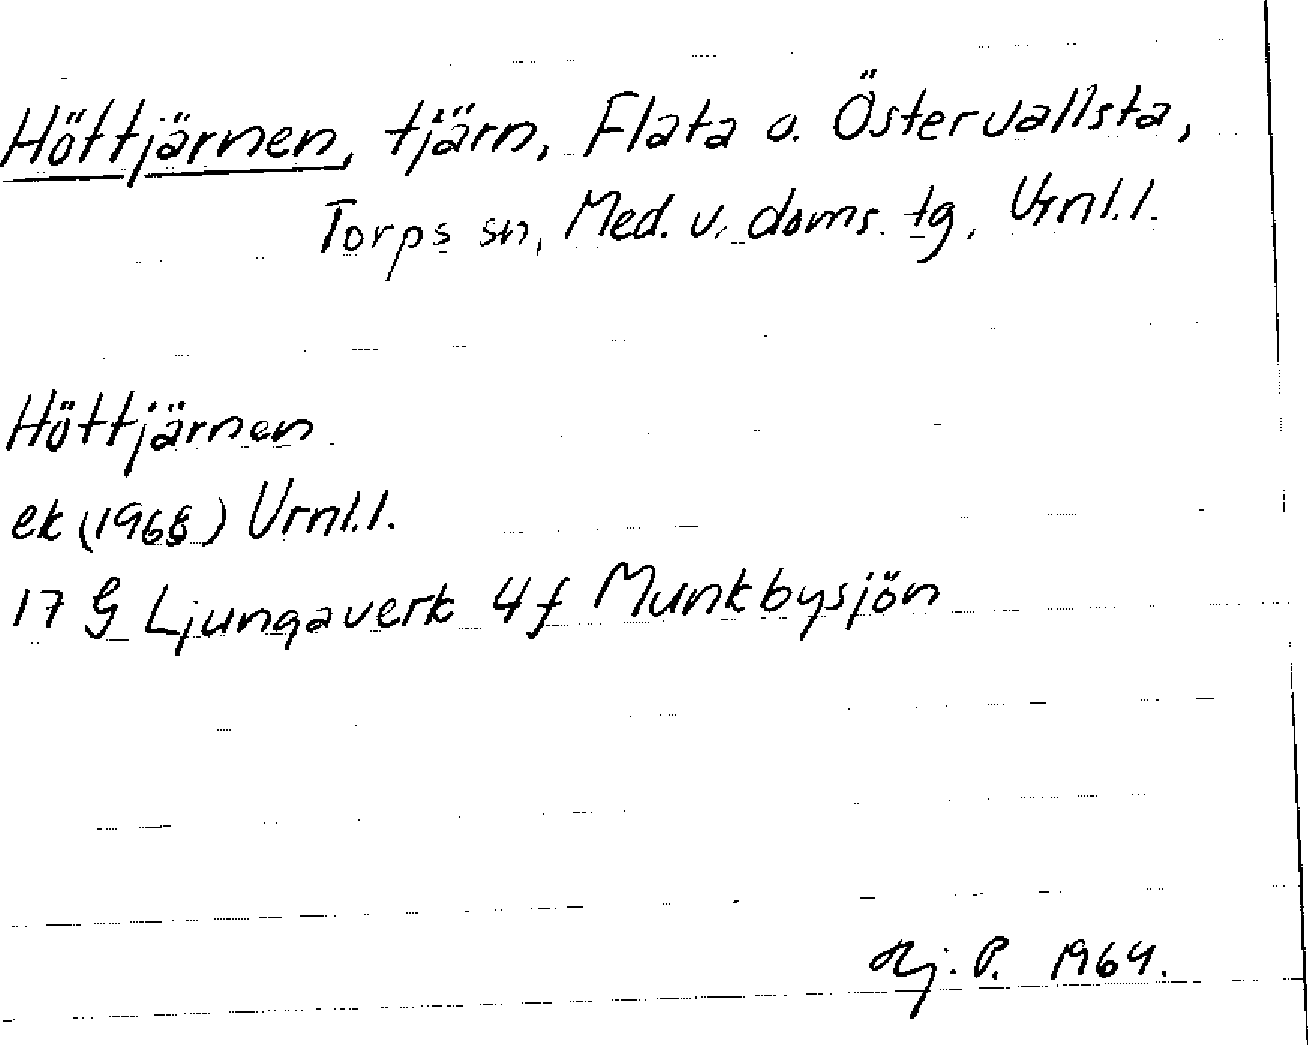 Höttjärnen, tjärn, Flata o. Östervallsta,
Torps sn, Med. v. doms. tg, Vrnl.l.
Höttjärnen
ek (1968) Vrnl.l.
17 G Ljungaverk 4f Munkbysjön
Hj. P. 1964.